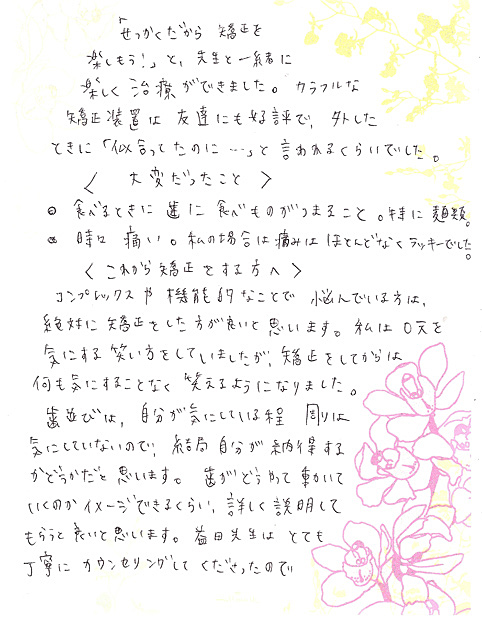 「せっかくだから 矯正を
楽しもう!」と、先生と一緒に
楽しく 治療ができました。カラフルな
矯正装置は 友達にも好評で、外した
ときに「似合ってたのに…」と 言われるくらいでした。
〈 大変だったこと 〉
◎ 食べるときに 歯に 食べものがつまること。特に 麺類。
◎ 時々 痛い。私の場合は痛みは ほとんどなくラッキーでした。
〈 これから矯正をする方へ 〉
コンプレックスや 機能的なことで 悩んでいる方は、
絶対に 矯正をした方が良いと 思います。私は 口元を
気にする 笑い方をしていましたが、矯正をしてからは
何も気にすることなく 笑えるようになりました。
歯並びは、自分が気にしている程 周りは
気にしていないので、結局 自分が納得する
かどうかだと 思います。歯がどうやって動いて
いくのか イメージできるくらい、詳しく 説明して
もらうと 良いと思います。益田先生は とても
丁寧に カウンセリングして くださったので